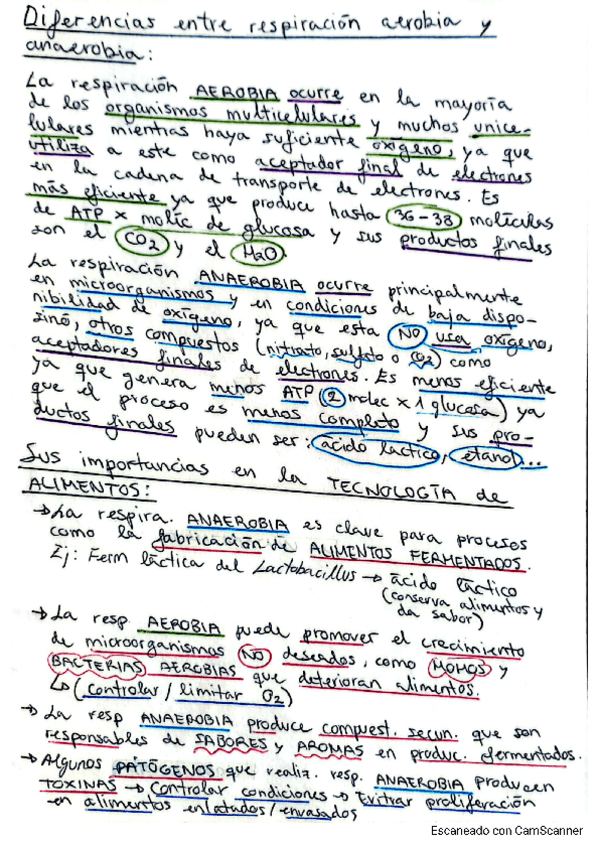 Diferencias entre respiración aerobia y
anaerobia:
La respiración AEROBIA ocurre en la mayoría
de los organismos multicelulares y muchos unice-
lulares mientras haya suficiente oxígeno, ya que
utiliza a este como aceptador final de electrones
en la cadena de transporte de electrones. Es
más eficiente ya que produce hasta 36-38 moléculas
de ATP x moléc de glucosa y sus productos finales
son el CO2 y el H2O.
La respiración ANAEROBIA ocurre principalmente
en microorganismos y en condiciones de baja dispo-
nibilidad de oxígeno, ya que esta NO usa oxígeno,
sinó, otros compuestos (nitrato, sulfato o CO2) como
aceptadores finales de electrones. Es menos eficiente
ya que genera menos ATP (2 molec x 1 glucosa) ya
que el proceso es menos completo y sus pro-
ductos finales pueden ser: ácido láctico, etanol...
Sus importancias en la TECNOLOGÍA de
ALIMENTOS:
→ La respira. ANAEROBIA es clave para procesos
como la fabricación de ALIMENTOS FERMENTADOS.
Ej: Ferm láctica del Lactobacillus → ácido láctico
(conserva alimentos y
da sabor)
→ La resp. AEROBIA puede promover el crecimiento
de microorganismos NO deseados, como MOHOS y
BACTERIAS AEROBIAS que deterioran alimentos.
↳ (controlar / limitar O2)
→ La resp ANAEROBIA produce compuest. secun. que son
responsables de SABORES y AROMAS en produc. fermentados.
→ Algunos PATÓGENOS que realiz. resp. ANAEROBIA producen
TOXINAS → Controlar condiciones → Evitrar proliferación
en alimentos enlatados/envasados
Escaneado con CamScanner